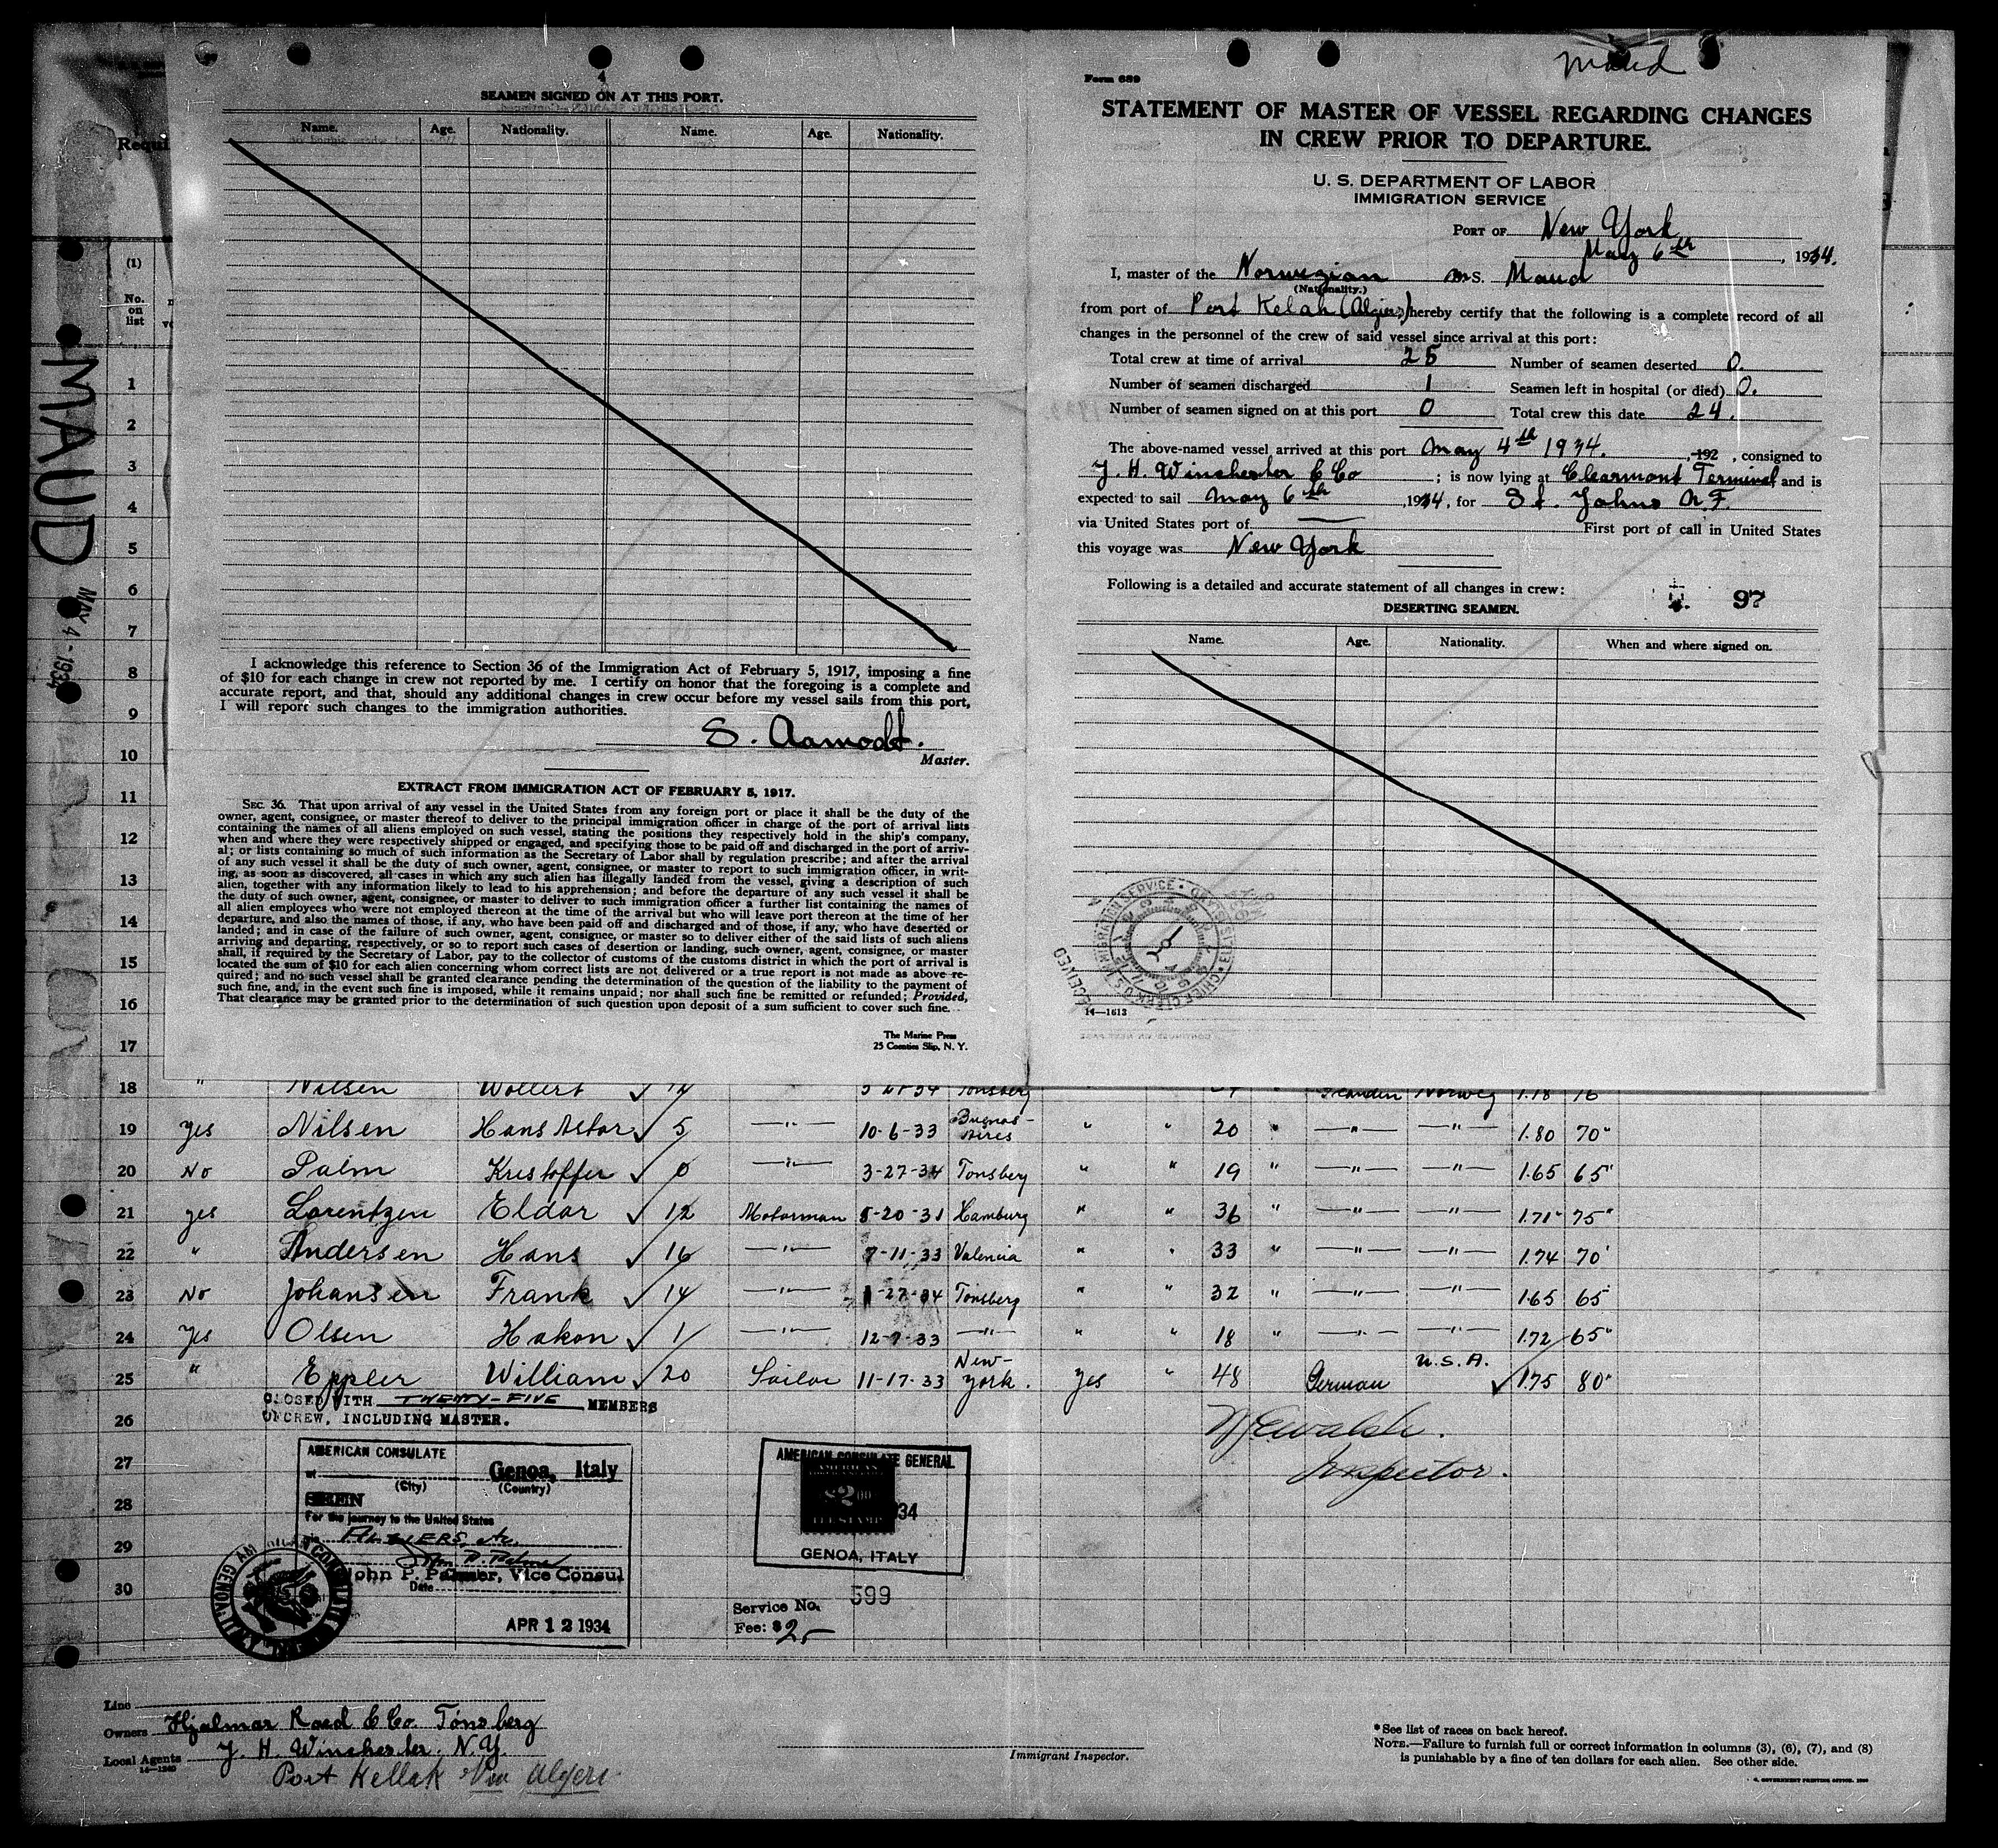 4
SEAMEN SIGNED ON AT THIS PORT.
Name. Age. Nationality. Name. Age. Nationality.
I acknowledge this reference to Section 36 of the Immigration Act of February 5, 1917, imposing a fine
of $10 for each change in crew not reported by me. I certify on honor that the foregoing is a complete and
accurate report, and that, should any additional changes in crew occur before my vessel sails from this port,
I will report such changes to the immigration authorities.
S. Aamodt.
Master.
EXTRACT FROM IMMIGRATION ACT OF FEBRUARY 5, 1917.
SEC. 36. That upon arrival of any vessel in the United States from any foreign port or place it shall be the duty of the
owner, agent, consignee, or master thereof to deliver to the principal immigration officer in charge of the port of arrival lists
containing the names of all aliens employed on such vessel, stating the positions they respectively hold in the ship's company,
when and where they were respectively shipped or engaged, and specifying those to be paid off and discharged in the port of arriv-
al; or lists containing so much of such information as the Secretary of Labor shall by regulation prescribe; and after the arrival
of any such vessel it shall be the duty of such owner, agent, consignee, or master to report to such immigration officer, in writ-
ing, as soon as discovered, all cases in which any such alien has illegally landed from the vessel, giving a description of such
alien, together with any information likely to lead to his apprehension; and before the departure of any such vessel it shall be
the duty of such owner, agent, consignee, or master to deliver to such immigration officer a further list containing the names of
all alien employees who were not employed thereon at the time of the arrival but who will leave port thereon at the time of her
departure, and also the names of those, if any, who have been paid off and discharged and of those, if any, who have deserted or
landed; and in case of the failure of such owner, agent, consignee, or master so to deliver either of the said lists of such aliens
arriving and departing, respectively, or so to report such cases of desertion or landing, such owner, agent, consignee, or master
shall, if required by the Secretary of Labor, pay to the collector of customs of the customs district in which the port of arrival is
located the sum of $10 for each alien concerning whom correct lists are not delivered or a true report is not made as above re-
quired; and no such vessel shall be granted clearance pending the determination of the question of the liability to the payment of
such fine, and, in the event such fine is imposed, while it remains unpaid; nor shall such fine be remitted or refunded; Provided,
That clearance may be granted prior to the determination of such question upon deposit of a sum sufficient to cover such fine.
The Marine Press
25 Coenties Slip, N. Y.
Maud
Form 689
STATEMENT OF MASTER OF VESSEL REGARDING CHANGES
IN CREW PRIOR TO DEPARTURE.
U. S. DEPARTMENT OF LABOR
IMMIGRATION SERVICE
PORT OF New York
May 6th, 1934.
I, master of the Norwegian M S. Maud
(Nationality.)
from port of Port Kelah (Algiers) hereby certify that the following is a complete record of all
changes in the personnel of the crew of said vessel since arrival at this port:
Total crew at time of arrival 25 Number of seamen deserted 0.
Number of seamen discharged 1 Seamen left in hospital (or died) 0.
Number of seamen signed on at this port 0 Total crew this date 24.
The above-named vessel arrived at this port May 4th 1934. , 192 , consigned to
J. H. Winchester & Co ; is now lying at Clearmont Terminal and is
expected to sail May 6th , 1934, for St. Johns N.F.
via United States port of — First port of call in United States
this voyage was New York
Following is a detailed and accurate statement of all changes in crew:
97
DESERTING SEAMEN.
Name. Age. Nationality. When and where signed on.
RECEIVED
14—1613
Requi
(1)
No.
on
list
MAUD
MAY 4 - 1934
1
2
3
4
5
6
7
8
9
10
11
12
13
14
15
16
17
18 " Nilsen Wollert Tonsberg Norweg 1.78
19 Yes Nilsen Hans Astor 5 —"— 10-6-33 Buenos-Aires " " 20 " —"— —"— 1.80 70"
20 No Palm Kristoffer 0 —"— 3-27-34 Tonsberg " " 19 " —"— —"— 1.65 65"
21 yes Lorentzen Eldar 12 Motorman 8-20-31 Hamburg " " 36 " —"— —"— 1.71 75"
22 " Andersen Hans 16 —"— 7-11-33 Valencia " " 33 " —"— —"— 1.74 70"
23 No Johansen Frank 14 —"— -27-34 Tonsberg " " 32 " —"— —"— 1.65 65
24 Yes Olsen Hakon 1 —"— 12-7-33 —"— " " 18 " —"— —"— 1.72 65"
25 " Eppler William 20 Sailor 11-17-33 New-york. Yes " 48 German U.S.A. 1.75 80"
CLOSED WITH TWENTY-FIVE MEMBERS
OF CREW, INCLUDING MASTER.
26
27
28
29
30
Inspector.
AMERICAN CONSULATE
at Genoa, Italy
(City) (Country)
SEEN
For the journey to the United States
ALGIERS,
John P. Palmer, Vice Consul
Date
APR 12 1934
AMERICAN CONSULATE GENERAL
$2.00
34
GENOA, ITALY
Service No. 599
Fee: $2-
Line
Owners Hjalmar Roed & Co. Tönsberg
Local Agents J. H. Winchester, N.Y.
14—1240
Port Kellah Via Algers
Immigrant Inspector.
* See list of races on back hereof.
NOTE.—Failure to furnish full or correct information in columns (3), (6), (7), and (8)
is punishable by a fine of ten dollars for each alien. See other side.